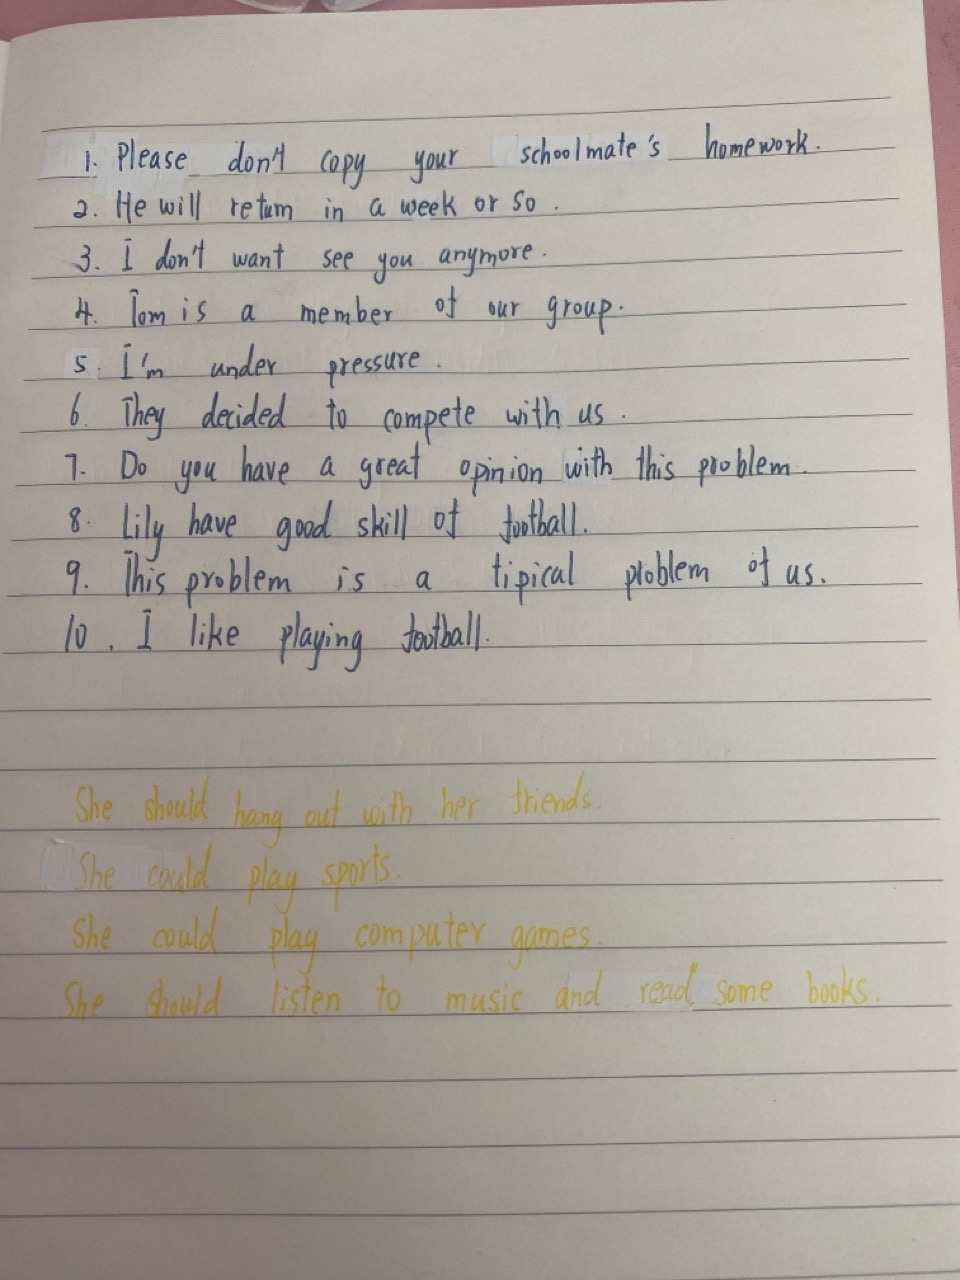 1. Please don't copy your schoolmate's homework.
2. He will return in a week or so.
3. I don't want see you anymore.
4. Tom is a member of our group.
5. I'm under pressure.
6. They decided to compete with us.
7. Do you have a great opinion with this problem.
8. Lily have good skill of football.
9. This problem is a tipical problem of us.
10. I like playing football.
She should hang out with her friends.
She could play sports.
She could play computer games.
She should listen to music and read some books.